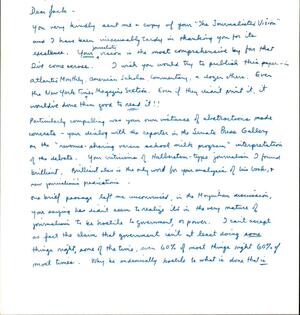 Dear Jack -
You very kindly sent me a copy of your "The Journalist's Vision"
and I have been inexcusably tardy in thanking you for its
excellence. Your journalistic vision is the most comprehensive by far that
I've come across. I wish you would try to publish this paper - in
Atlantic Monthly, American Scholar, Commentary, a dozen others. Even
the New York Times Magazine Section. Even if they didn't print it, it
would've done them good to read it!!
Particularly compelling was your own instances of abstractions made
concrete - your dialog with the reporter in the Senate Press Gallery
on the "revenue-sharing versus school milk program" interpretation
of the debate. Your criticisms of -type journalism I found
brilliant. Brilliant also is the only word for your analysis of his work, &
new journalism's predications.
One brief passage left me unconvinced, in the Moynihan discussion,
you saying he didn't seem to realize it's in the very nature of
journalism to be hostile to government or power. I can't accept
as fact the claim that government isn't at least doing some
things right, some of the time, even 60% of most things right 60% of
most times. Why be endemically hostile to what is done that is